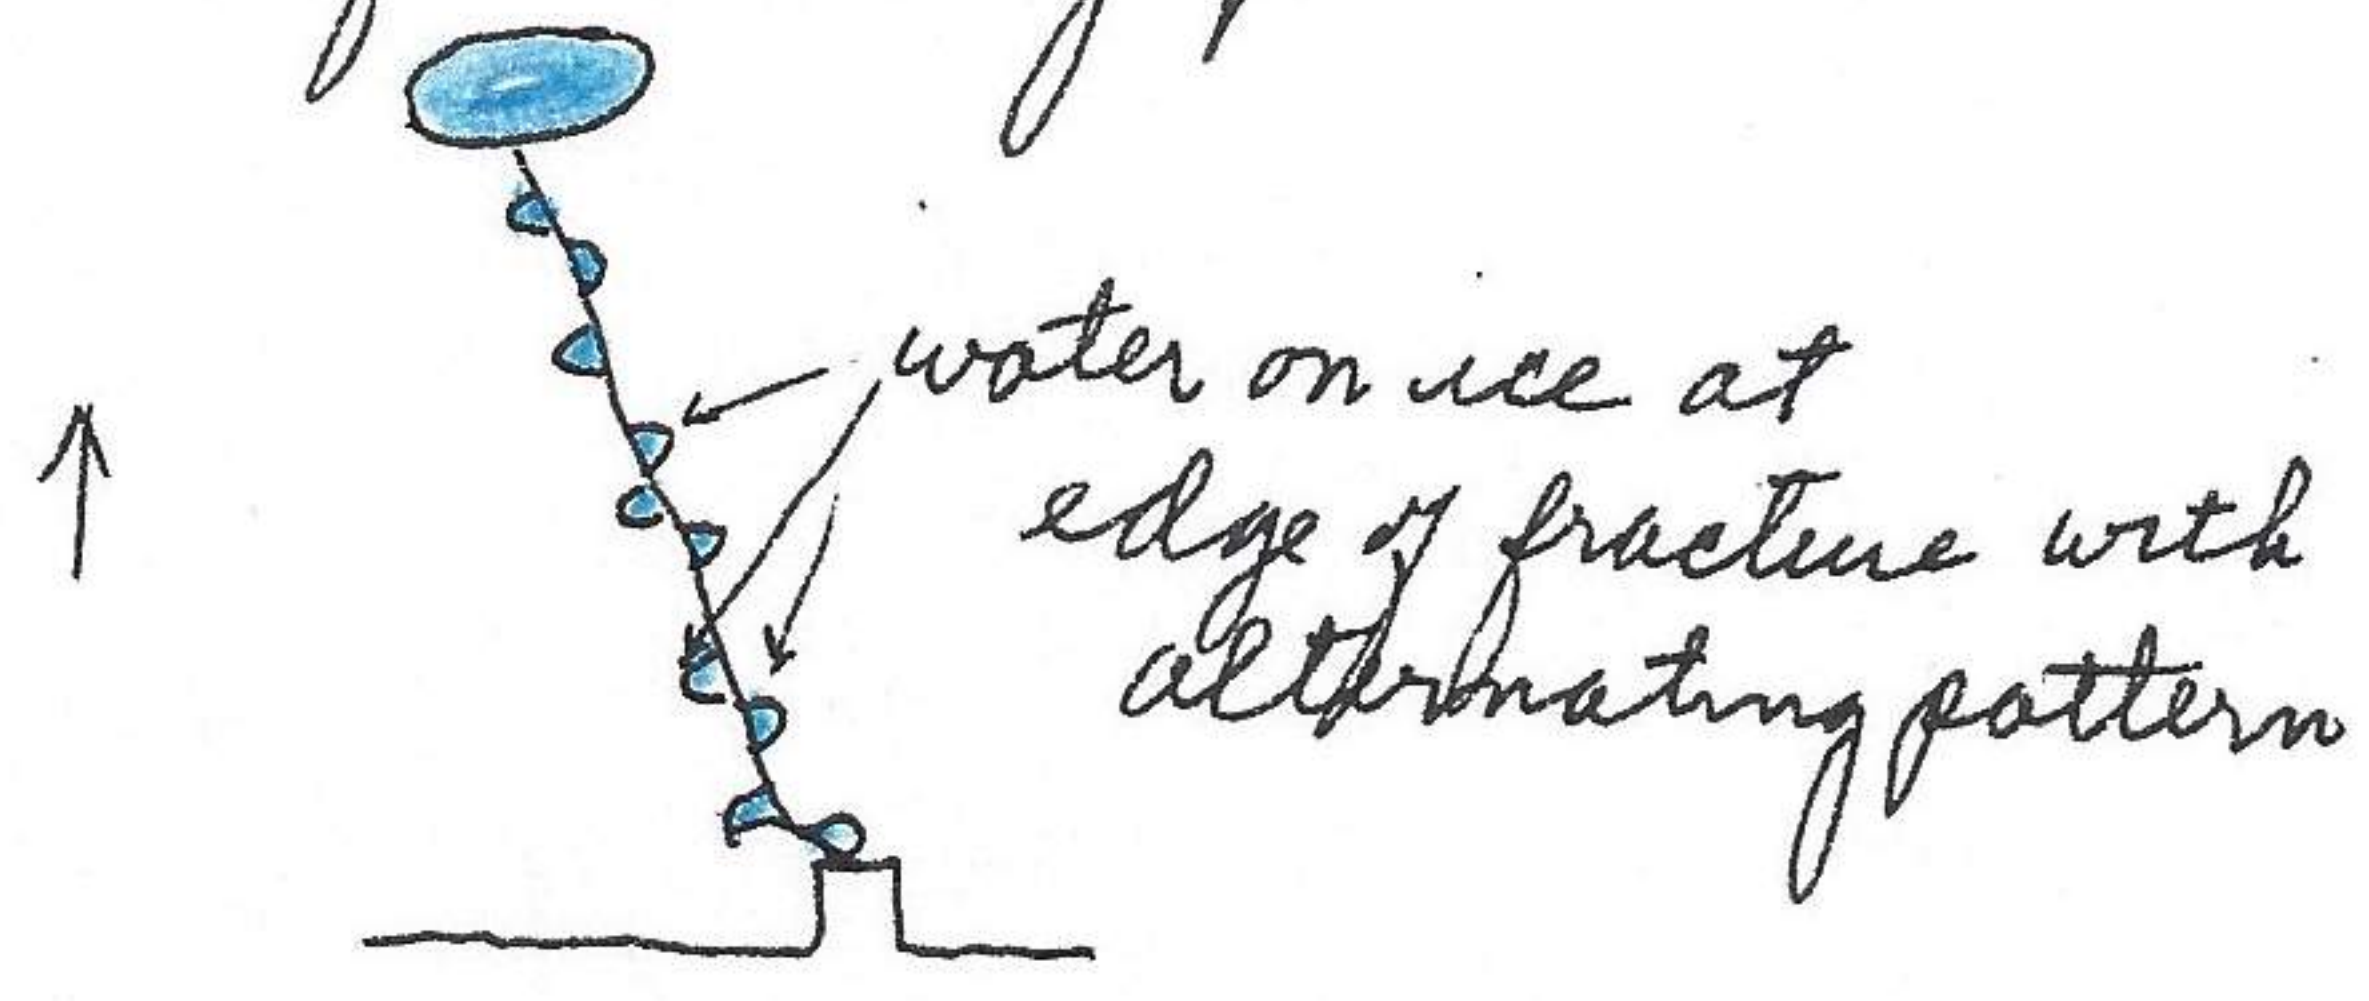 water on ice at
edge of fracture with
alternating pattern